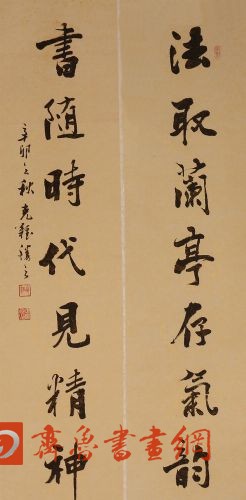 法取蘭亭存氣韵
書隨時代見精神
辛卯之秋
齊魯書畫網